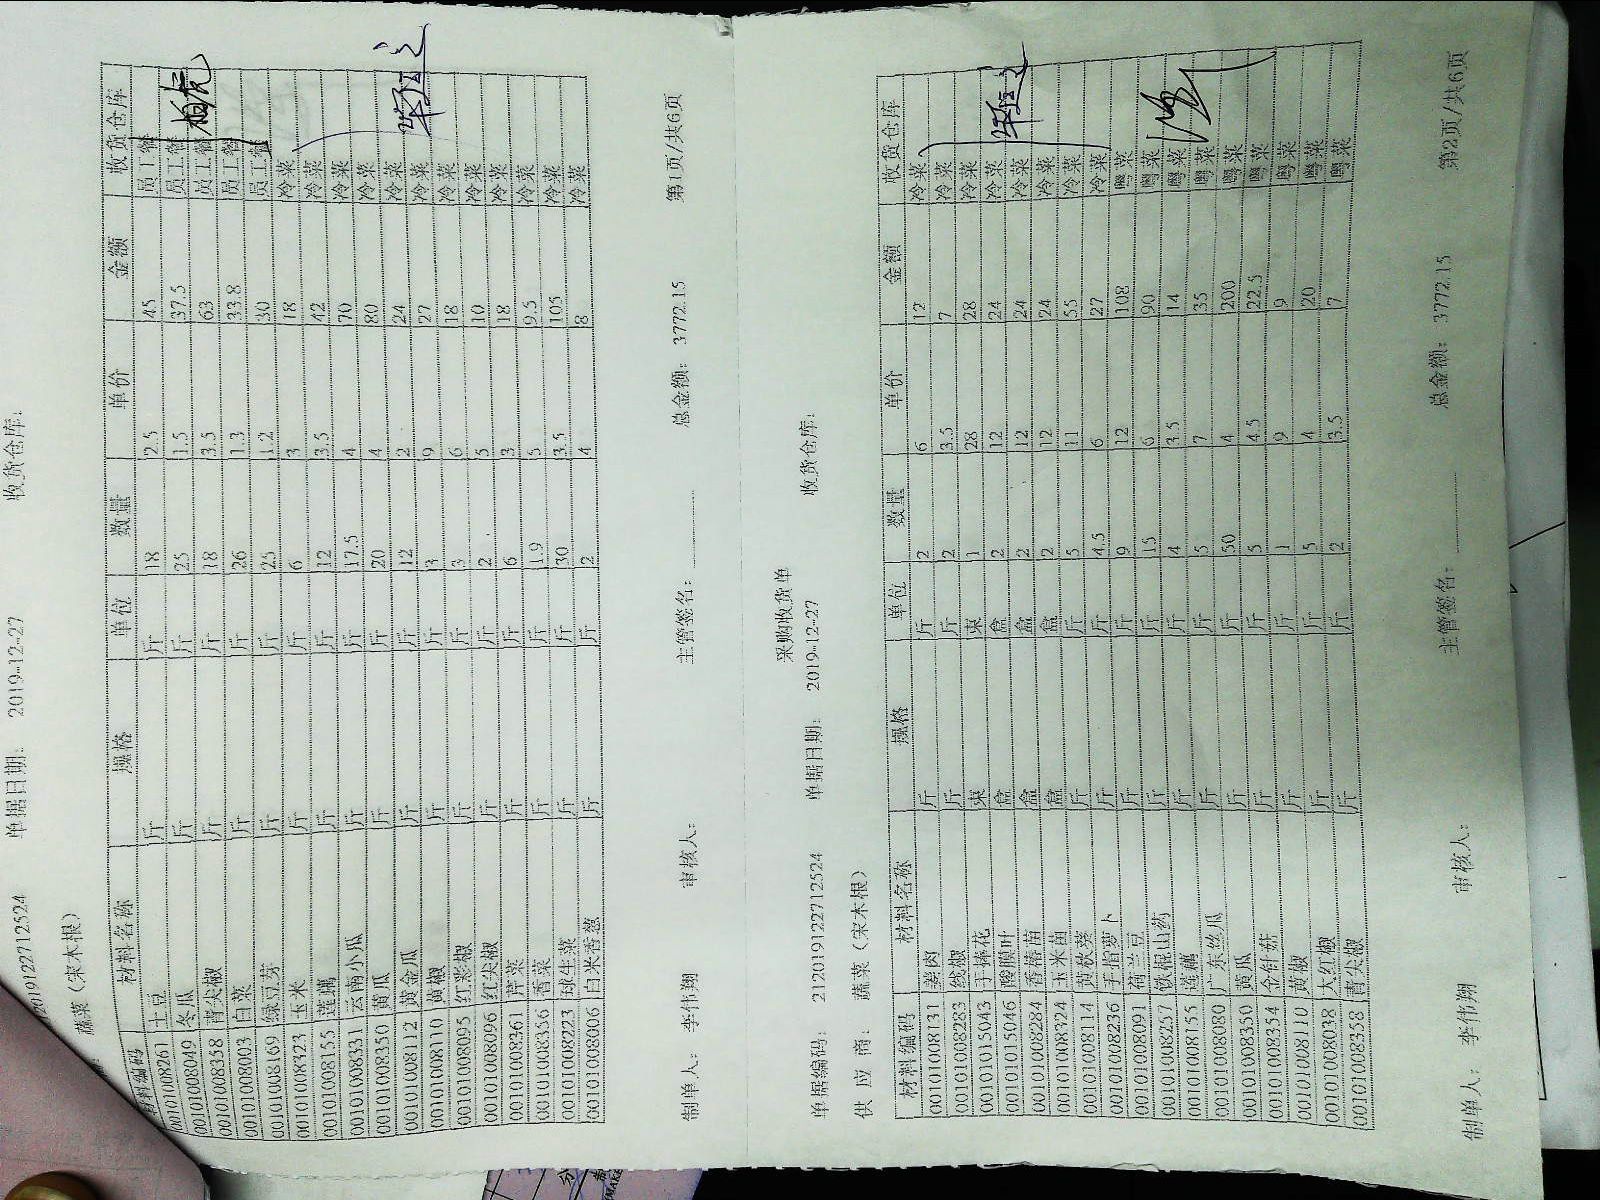 2019122712524 单据日期： 2019-12-27 收货仓库：
蔬菜（宋木根）
材料编码 材料名称 规格 单位 数量 单价 金额 收货仓库
00101008261 土豆 斤 斤 18 2.5 45 员工餐
00101008049 冬瓜 斤 斤 25 1.5 37.5 员工餐
00101008358 青尖椒 斤 斤 18 3.5 63 员工餐
00101008003 白菜 斤 斤 26 1.3 33.8 员工餐
00101008169 绿豆芽 斤 斤 25 1.2 30 员工餐
00101008323 玉米 斤 斤 6 3 18 冷菜
00101008155 莲藕 斤 斤 12 3.5 42 冷菜
00101008331 云南小瓜 斤 斤 17.5 4 70 冷菜
00101008350 黄瓜 斤 斤 20 4 80 冷菜
00101008112 黄金瓜 斤 斤 12 2 24 冷菜
00101008110 黄椒 斤 斤 3 9 27 冷菜
00101008095 红彩椒 斤 斤 3 6 18 冷菜
00101008096 红尖椒 斤 斤 2 5 10 冷菜
00101008361 芹菜 斤 斤 6 3 18 冷菜
00101008356 香菜 斤 斤 1.9 5 9.5 冷菜
00101008223 球生菜 斤 斤 30 3.5 105 冷菜
00101008006 白米香葱 斤 斤 2 4 8 冷菜
制单人： 李伟翔 审核人： 主管签名： 总金额： 3772.15 第1页/共6页
采购收货单
单据编码： 212019122712524 单据日期： 2019-12-27 收货仓库：
供 应 商： 蔬菜（宋木根）
材料编码 材料名称 规格 单位 数量 单价 金额 收货仓库
00101008131 姜肉 斤 斤 2 6 12 冷菜
00101008283 线椒 斤 斤 2 3.5 7 冷菜
00101015043 手捧花 束 束 1 28 28 冷菜
00101015046 酸膜叶 盒 盒 2 12 24 冷菜
00101008284 香椿苗 盒 盒 2 12 24 冷菜
00101008324 玉米菌 盒 盒 2 12 24 冷菜
00101008114 黄秋葵 斤 斤 5 11 55 冷菜
00101008236 手指萝卜 斤 斤 4.5 6 27 冷菜
00101008091 荷兰豆 斤 斤 9 12 108 粤菜
00101008257 铁棍山药 斤 斤 15 6 90 粤菜
00101008155 莲藕 斤 斤 4 3.5 14 粤菜
00101008080 广东丝瓜 斤 斤 5 7 35 粤菜
00101008350 黄瓜 斤 斤 50 4 200 粤菜
00101008354 金针菇 斤 斤 5 4.5 22.5 粤菜
00101008110 黄椒 斤 斤 1 9 9 粤菜
00101008038 大红椒 斤 斤 5 4 20 粤菜
00101008358 青尖椒 斤 斤 2 3.5 7 粤菜
制单人： 李伟翔 审核人： 主管签名： 总金额： 3772.15 第2页/共6页